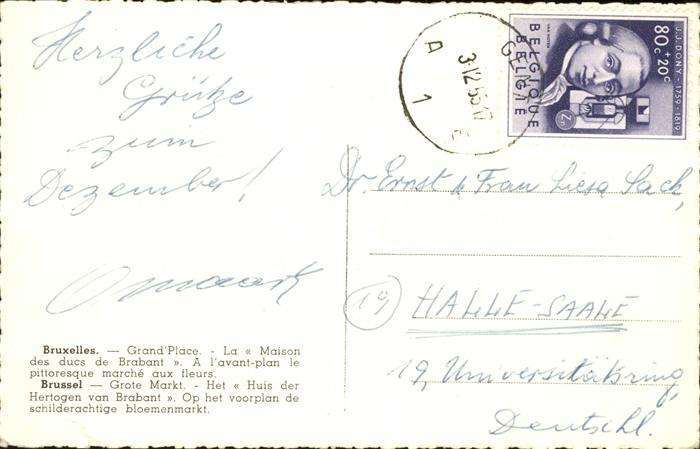 Herzliche
Grütze
zum
Dezember!
Bruxelles. — Grand'Place. - La « Maison
des ducs de Brabant ». A l'avant-plan le
pittoresque marché aux fleurs.
Brussel — Grote Markt. - Het « Huis der
Hertogen van Brabant ». Op het voorplan de
schilderachtige bloemenmarkt.
GENT
3.12.55.17
A 1
80c + 20c
BELGIQUE
BELGIË
J.J. DONY - 1759 - 1819
Zn
Dr. Ernst u Frau Liesa Sack,
(19) HALLE-SAALE
19, Universitätsring,
Deutschl.